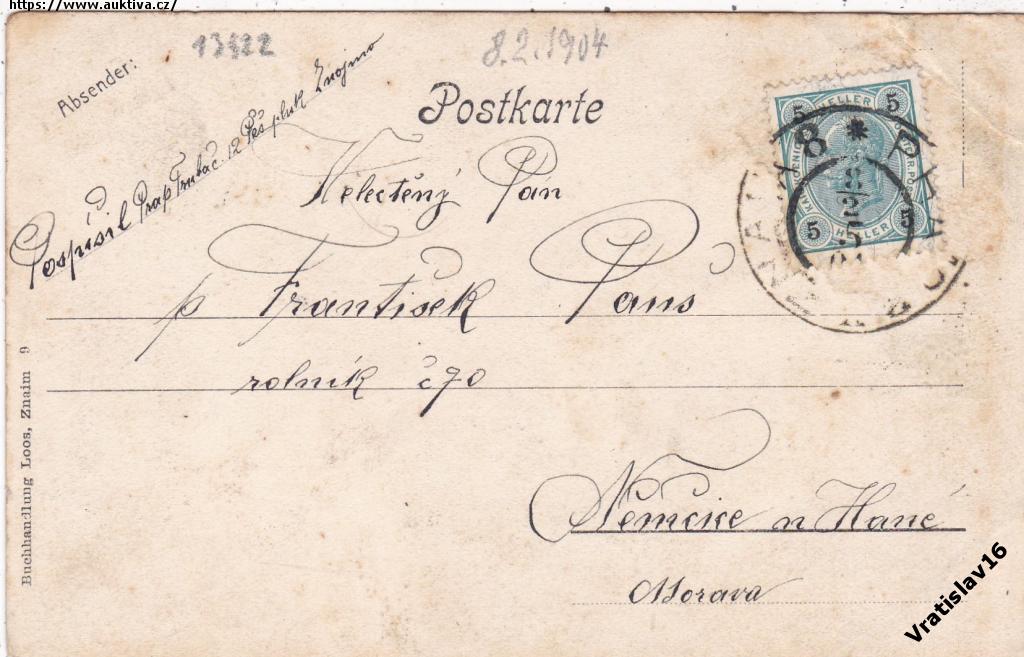 https://www.auktiva.cz/
13522
8.2.1904
Absender:
Pospíšil Prap Trubač 12 Pěš pluk Znojmo
Postkarte
5 HELLER 5
5 HELLER 5
ZNAIM
8
Velectěný Pán
p František Pauš
rolník č70
Němcice n Hané
Morava
Buchhandlung Loos, Znaim 9
Vratislav16